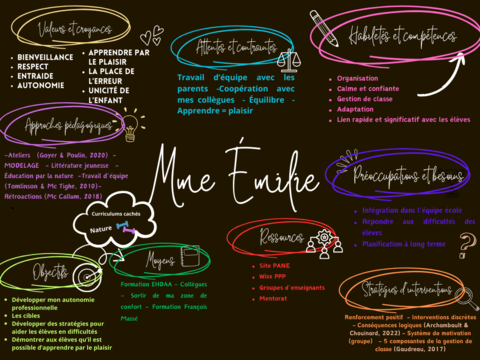 Valeurs et croyances
• BIENVEILLANCE
• RESPECT
• ENTRAIDE
• AUTONOMIE
• APPRENDRE PAR
LE PLAISIR
• LA PLACE DE
L'ERREUR
• UNICITÉ DE
L'ENFANT
Attentes et contraintes
Travail d'équipe avec les
parents -Coopération avec
mes collègues - Équilibre -
Apprendre = plaisir
Habiletés et compétences
• Organisation
• Calme et confiante
• Gestion de classe
• Adaptation
• Lien rapide et significatif avec les élèves
Approches pédagogiques
-Ateliers (Goyer & Poulin, 2020) -
MODELAGE - Littérature jeunesse -
Éducation par la nature -Travail d'équipe
(Tomlinson & Mc Tighe, 2010)-
Rétroactions (Mc Callum, 2018)
Mme Émilie
Préoccupations et besoins
• Intégration dans l'équipe école
• Répondre aux difficultés des
élèves
• Planification à long terme
Curriculums cachés
Nature
Ressources
• Site PANE
• Wixx PPP
• Groupes d'enseignants
• Mentorat
Objectifs
• Développer mon autonomie
professionnelle
• Les cibles
• Développer des stratégies pour
aider les élèves en difficultés
• Démontrer aux élèves qu'il est
possible d'apprendre par le plaisir
Moyens
Formation EHDAA - Collègues
- Sortir de ma zone de
confort - Formation François
Massé
Stratégies d'interventions
Renforcement positif - Interventions discrètes
- Conséquences logiques (Archambault &
Chouinard, 2022) - Système de motivation
(groupe) - 5 composantes de la gestion de
classe (Gaudreau, 2017)